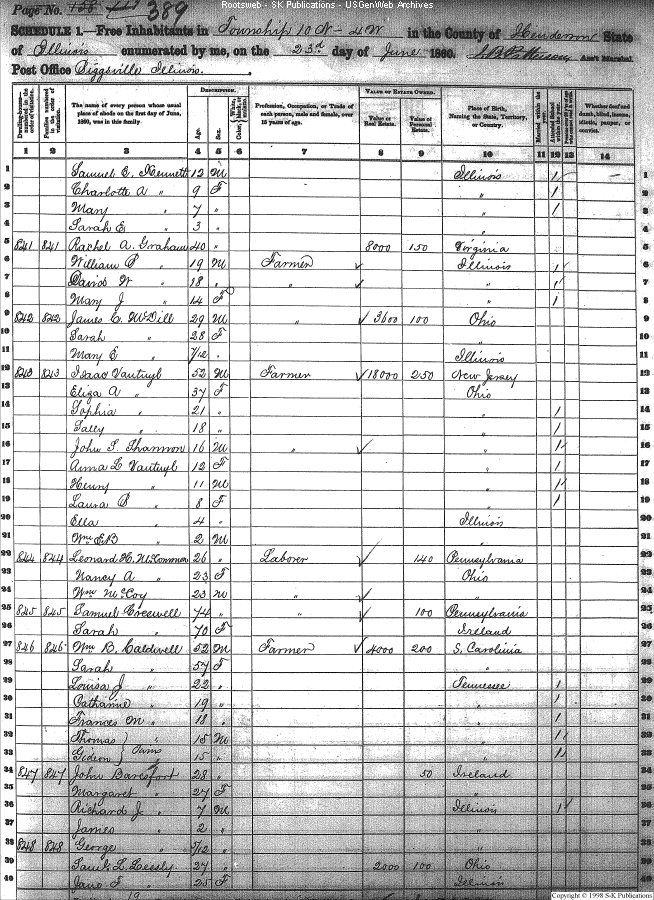 Rootsweb - SK Publications - USGenWeb Archives
Page No. 138 389
SCHEDULE 1.—Free Inhabitants in Township 10 N - 4 W in the County of Henderson State
of Illinois enumerated by me, on the 23rd day of June 1860. Ass't Marshal.
Post Office Biggsville Illinois.
Dwelling-houses— numbered in the order of visitation. Families numbered in the order of visitation. The name of every person whose usual place of abode on the first day of June, 1860, was in this family. DESCRIPTION. Age. Sex. Profession, Occupation, or Trade of each person, male and female, over 15 years of age. VALUE OF ESTATE OWNED. Value of Real Estate. Value of Personal Estate. Place of Birth, Naming the State, Territory, or Country. Married within the year. Whether deaf and dumb, blind, insane, idiotic, pauper, or convict.
1 2 3 4 5 6 7 8 9 10 11 12 13 14
1 Samuel E. 12 M Illinois / 1
2 Charlotte A " 9 F " / 2
3 Mary " 7 " " / 3
4 Sarah E " 3 " " 4
5 841 841 Rachel A. Graham 40 " 8000 150 Virginia 5
6 William P " 19 M Farmer Illinois / 6
7 David W " 18 " " " / 7
8 Mary J " 14 F " / 8
9 842 842 James C. McDill 29 M " 3600 100 Ohio 9
10 Sarah " 28 F " 10
11 Mary E " 7/12 " Illinois 11
12 843 843 Isaac Vantuyl 52 M Farmer 18000 250 New Jersey 12
13 Eliza A " 37 F Ohio 13
14 Sophia " 21 " " / 14
15 Sally " 18 " " / 15
16 John S. Shannon 16 M " " / 16
17 Anna L Vantuyl 12 F " / 17
18 Henry " 11 M " / 18
19 Laura P " 8 F " / 19
20 Ella " 4 " Illinois 20
21 Wm E B " 2 M " 21
22 844 844 Leonard H. 26 " Laborer 140 Pennsylvania 22
23 Nancy A " 23 F Ohio 23
24 Wm McCoy 23 M " " 24
25 845 845 Samuel Creswell 74 " " 100 Pennsylvania 25
26 Sarah " 70 F Ireland 26
27 846 846 Wm B. Caldwell 52 M Farmer 4000 200 S. Carolina 27
28 Sarah " 57 F " 28
29 Louisa J " 22 " Tennessee / 29
30 Catharine " 19 " " / 30
31 Frances M " 18 " " / 31
32 Thomas " 15 M " / 32
33 Gideon } Twins 15 " " / 33
34 847 847 John 28 " 50 Ireland 34
35 Margaret " 27 F " 35
36 Richard J " 7 M Illinois / 36
37 James " 2 " " 37
38 848 848 George " 5/12 " " 38
39 Saml L. Lessly 27 " 2000 100 Ohio 39
40 Jane F " 25 F Illinois 40
Copyright © 1998 S-K Publications